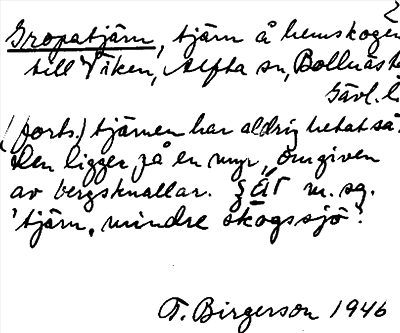 2
Gropatjärn, tjärn å hemskogen
till Viken, Alfta sn, Bollnäs t
Gävl. l
(forts.) tjärnen har aldrig hetat så.
Den ligger på en myr, omgiven
av bergsknallar. m. sg.
'tjärn, mindre skogssjö'.
T. Birgerson 1946